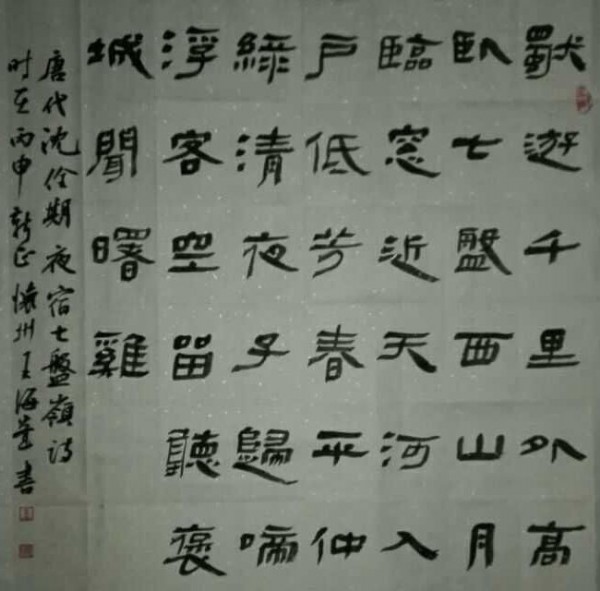 獨遊千里外高
卧七盤西山月
臨窓近天河入
戶低芳春平仲
綠清夜子歸啼
浮客空留聽褒
城聞曙雞
唐代沈佺期夜宿七盤嶺诗
时至丙申新正懷州王海書